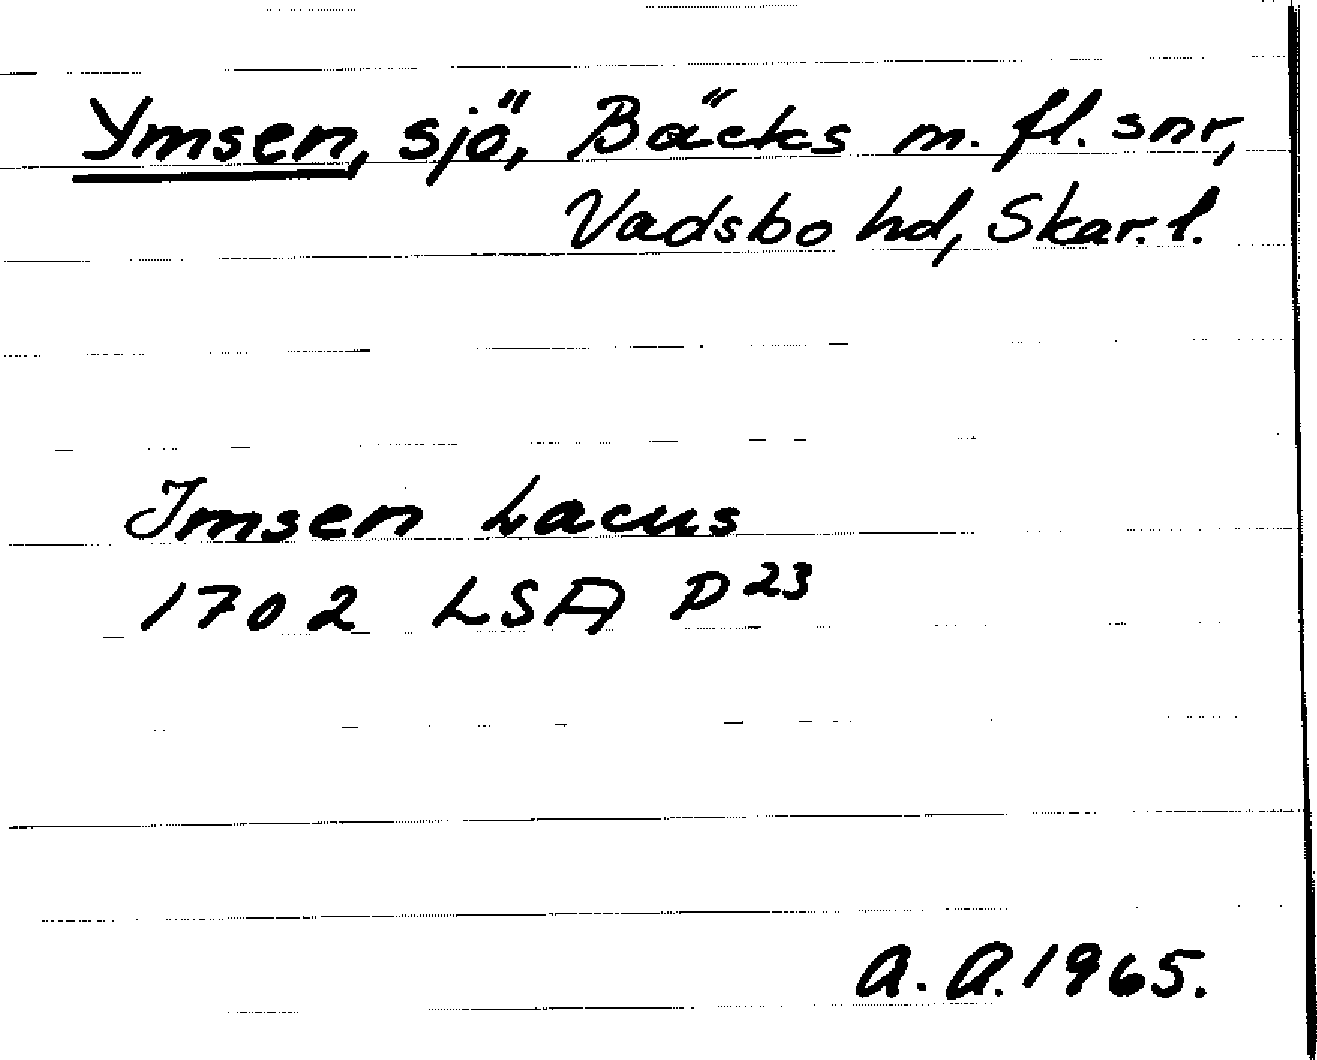 Ymsen, sjö, Bäcks m. fl. snr,
Vadsbo hd, Skar. l.
Imsen Lacus
1702 LSA P 23
A. A. 1965.